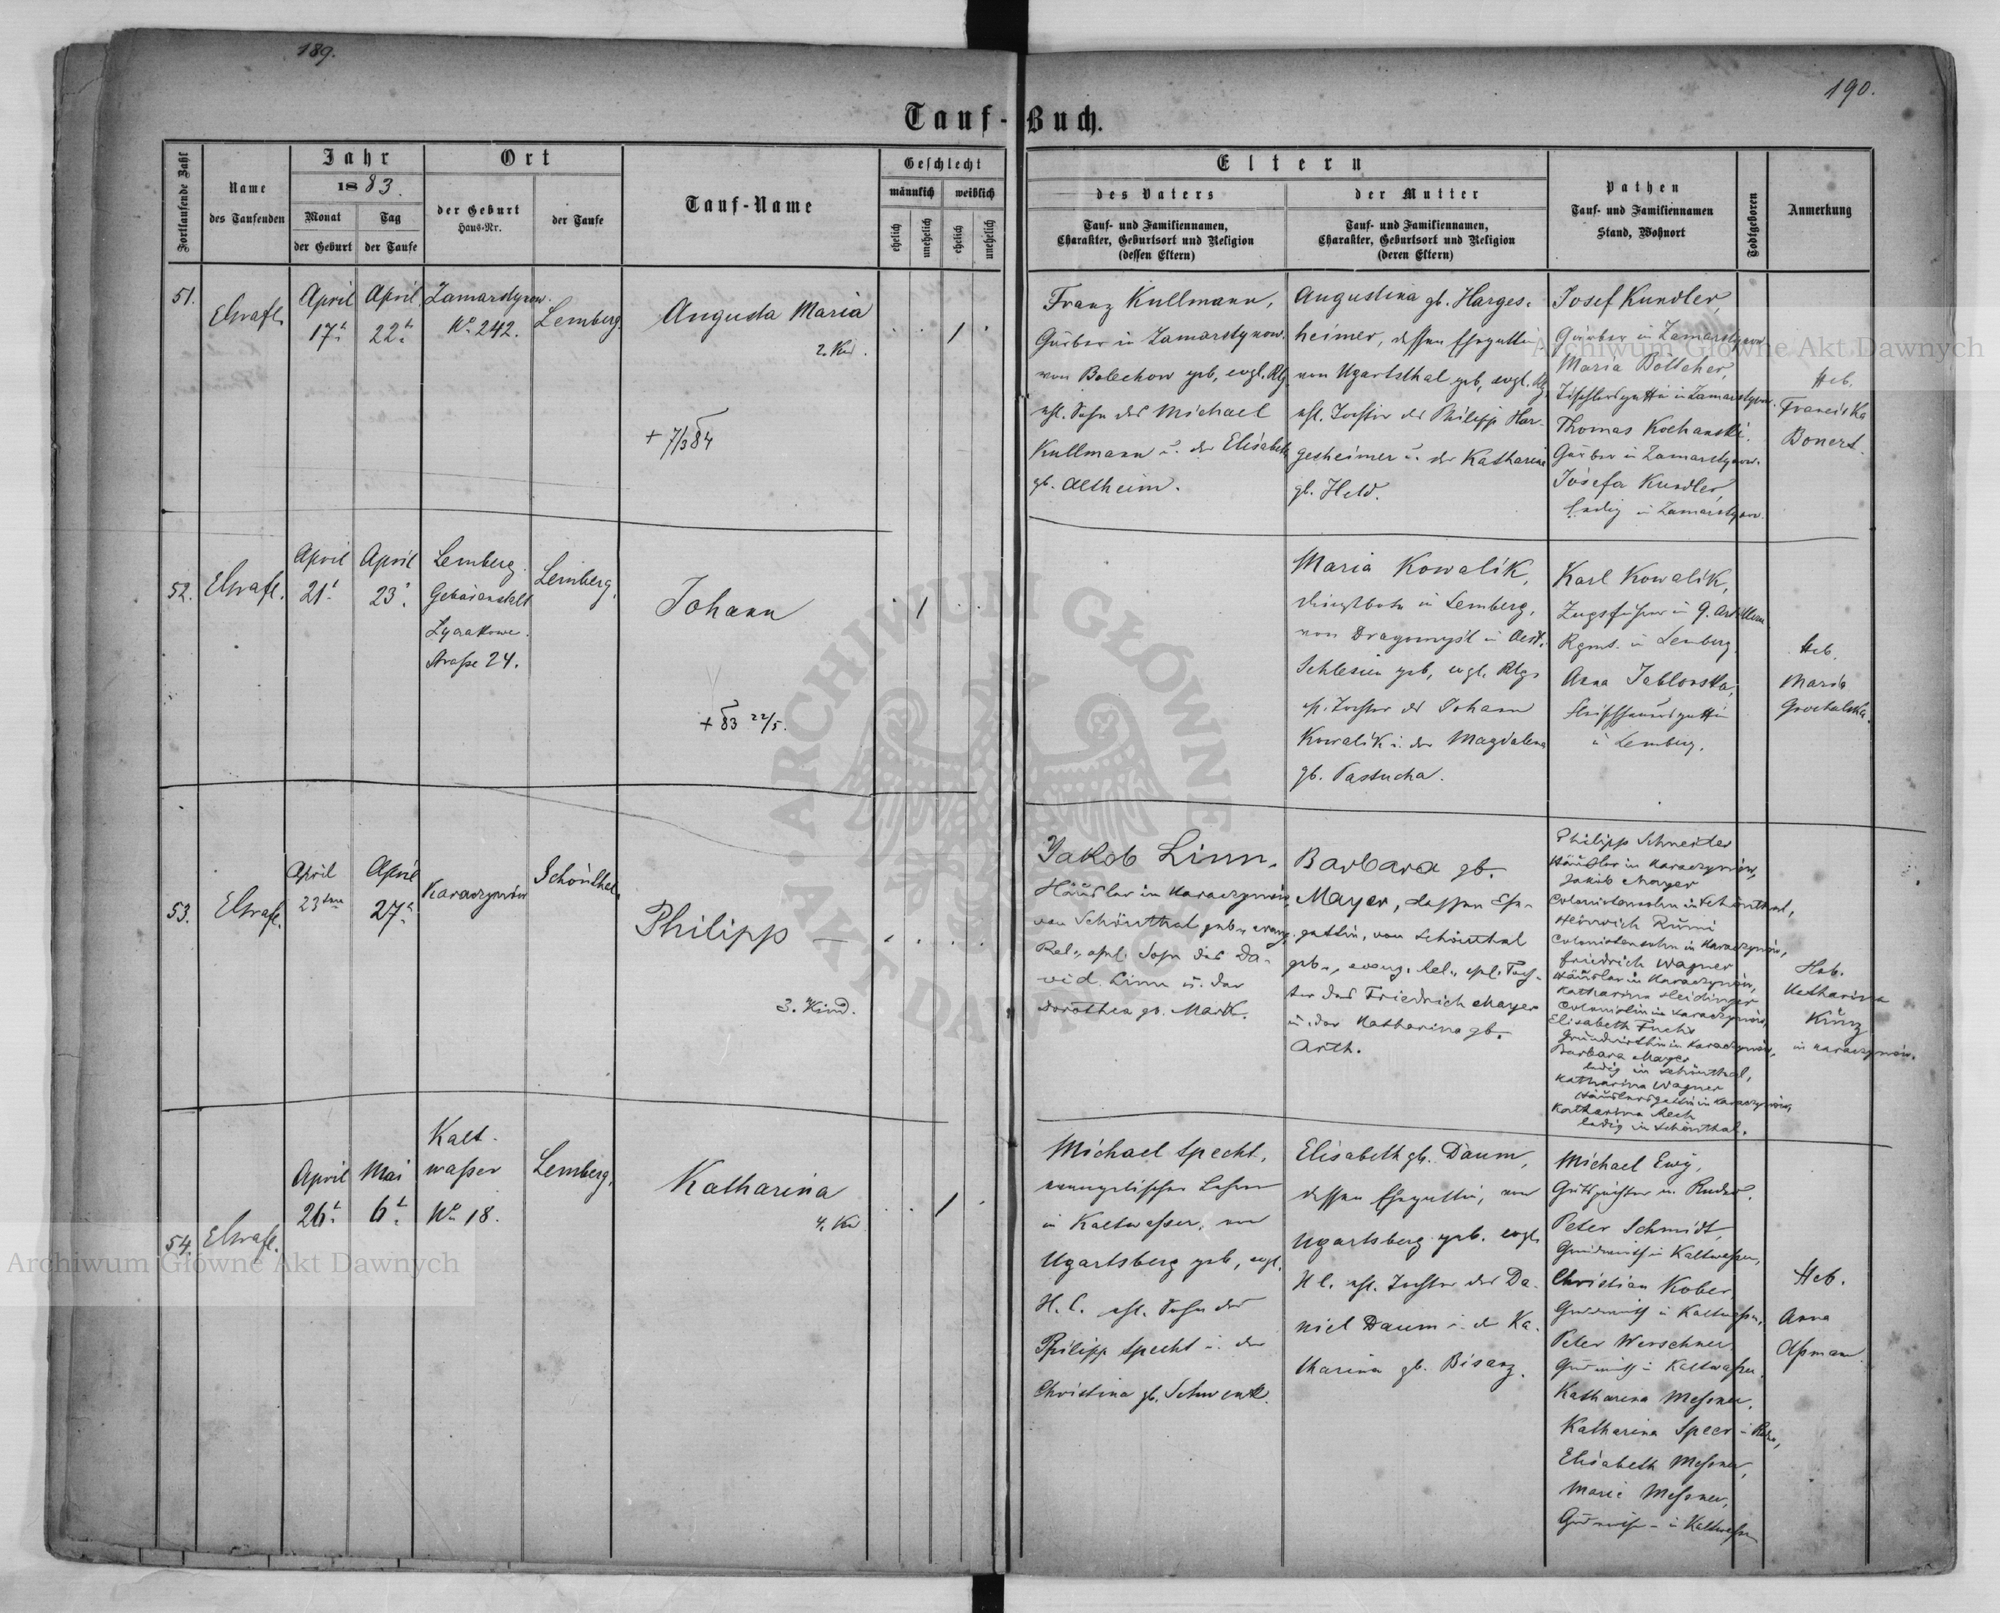 189.
190.
Tauf-Buch.
Fortlaufende Zahl
Name
des Taufenden
Jahr
1883.
Monat
der Geburt
Tag
der Taufe
Ort
der Geburt
Haus-Nr.
der Taufe
Tauf-Name
Geschlecht
männlich
weiblich
ehelich
unehelich
ehelich
unehelich
Eltern
des Vaters
Tauf- und Familiennamen,
Charakter, Geburtsort und Religion
(dessen Eltern)
der Mutter
Tauf- und Familiennamen,
Charakter, Geburtsort und Religion
(deren Eltern)
Pathen
Tauf- und Familiennamen
Stand, Wohnort
Todtgeboren
Anmerkung
51.
April
17t.
April
22t.
Zamarstynow.
No 242.
Lemberg.
Augusta Maria
2. Kd.
+ 7/3 84
1
Franz Kullmann,
Gärber in Zamarstynow.
von Bolechow geb, evgl. Rlg.
ehl. Sohn des Michael
Kullmann u. der Elisabeth
gb. Altheim.
Augustina gb. Harges-
heimer, dessen Ehegattin,
von Ugartsthal geb, evgl. Rlg.
ehl. Tochter des Philipp Har-
gesheimer u. der Katharina
gb. Held.
Josef Kundler,
Gärber in Zamarstynow.
Maria Böttcher,
Tischlersgattin in Zamarstynow.
Thomas Kochanski.
Gärber in Zamarstynow.
Josefa Kundler,
ledig in Zamarstynow.
Heb.
Franciska
Bonert.
52.
April
21t.
April
23t.
Lemberg.
Gebäranstalt
Lyczakower
Straße 24.
Lemberg.
Johann
+ 83 22/5.
1
Maria Kowalik,
Dienstbote in Lemberg,
von Dragomysl in Oest.
Schlesien geb, evgl. Rlg.
ehl. Tochter des Johann
Kowalik u. der Magdalena
gb. Pastucha.
Karl Kowalik,
Zugsführer in 9. Artillerie
Rgmt. in Lemberg
Anna Jablonska,
in Lemberg.
Heb.
Maria
Grochalska.
53.
April
23ten
April
27t.
Karaczynów
Schönthal.
Philipp —
3. Kind.
Jakob Linn,
Häusler in Karaczynów,
von Schönthal geb., evang.
Rel., ehel. Sohn des Da-
vid Linn u. der
Dorothea gb. Mark.
Barbara gb.
Mayer, dessen Ehe-
gattin, von Schönthal
geb., evang. Rel., ehel. Toch-
ter des Friedrich Mayer
u. der Katharina gb.
Arth.
Philipp Schneider
Häusler in Karaczynów,
Jakob Mayer
Colonistensohn in Schönthal,
Heinrich Rumi
Colonistensohn in Karaczynów,
Friedrich Wagner
Häusler in Karaczynów,
Katharina Heidinger
Colonistin in Karaczynów,
Elisabeth Fuchs
Grundwirthin in Karaczynów,
Barbara Mayer
ledig in Schönthal,
Katharina Wagner
Häuslersgattin in Karaczynów,
Katharina Rech
ledig in Schönthal.
Heb.
Katharina
Künz
in Karaczynów.
54.
April
26t.
Mai
6t.
Kalt-
waßer
No 18.
Lemberg.
Katharina
4. Kd.
1
Michael Specht,
evangelischer Lehrer
in Kaltwasser, von
Ugartsberg geb, evgl.
H. C. ehl. Sohn des
Philipp Specht u. der
Christina gb. Schwenk.
Elisabeth gb. Daum,
dessen Ehegattin, von
Ugartsberg geb. evgl.
H C. ehl. Tochter des Da-
niel Daum u. der Ka-
tharina gb. Bisanz.
Michael Ewy,
Gutspächter in
Peter Schmidt,
Grundwirth in Kaltwasser,
Christian Kober
Grundwirth in Kaltwasser,
Peter Werschner
Grundwirth in Kaltwasser.
Katharina Meßner,
Katharina Speer
Elisabeth Meßner,
Marie Meßner,
in Kaltwasser
Heb.
Anna
Aßman
Archiwum Główne Akt Dawnych
Archiwum Główne Akt Dawnych
ARCHIWUM GŁÓWNE AKT DAWNYCH